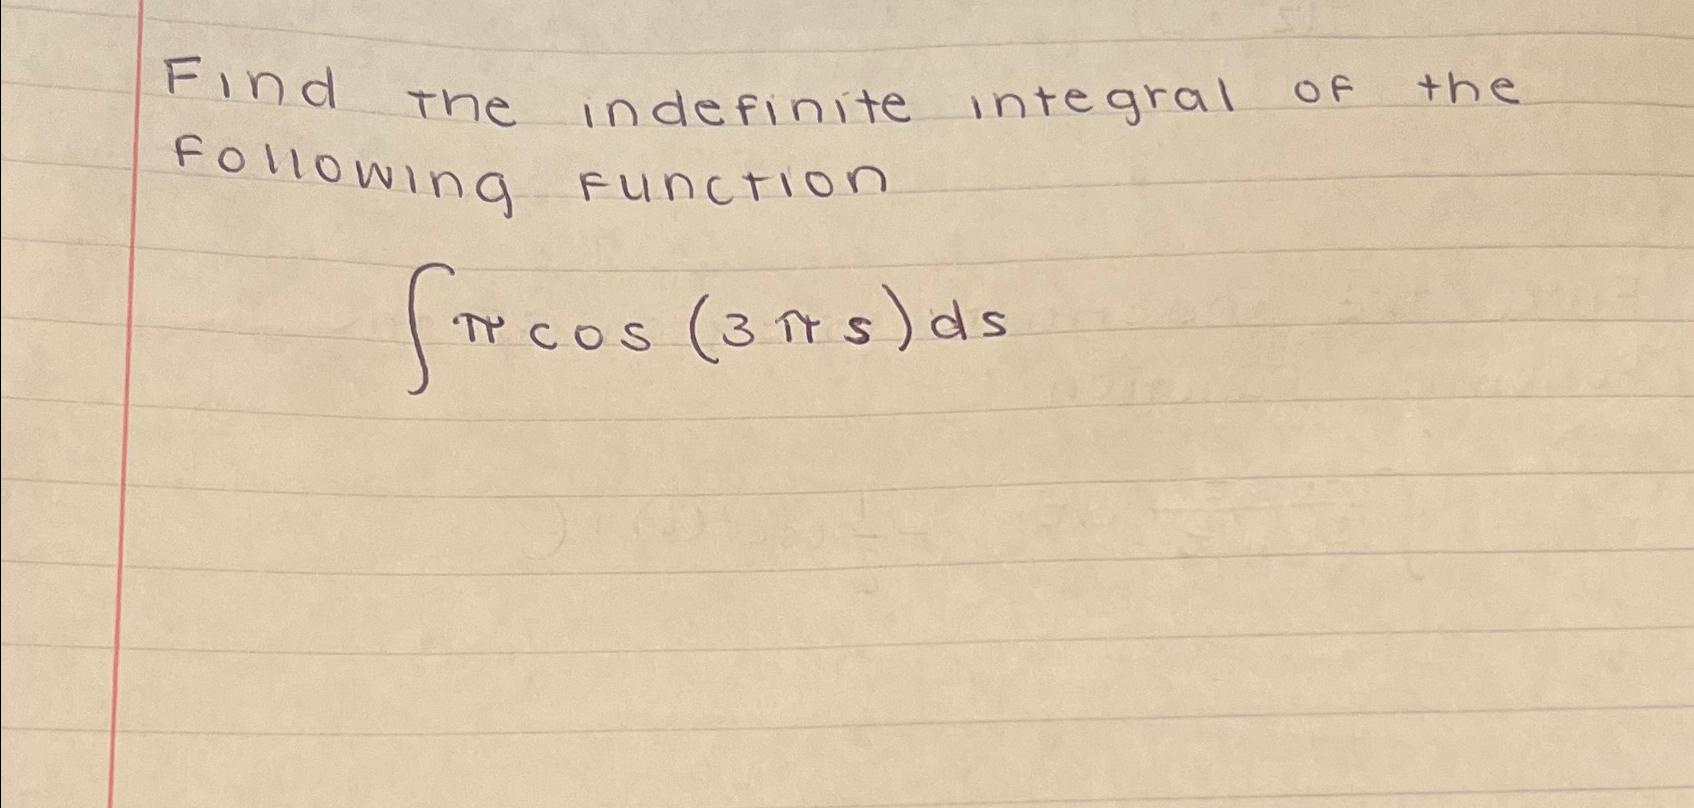 Find the indefinite integral of the
following function
∫π cos (3πs) ds